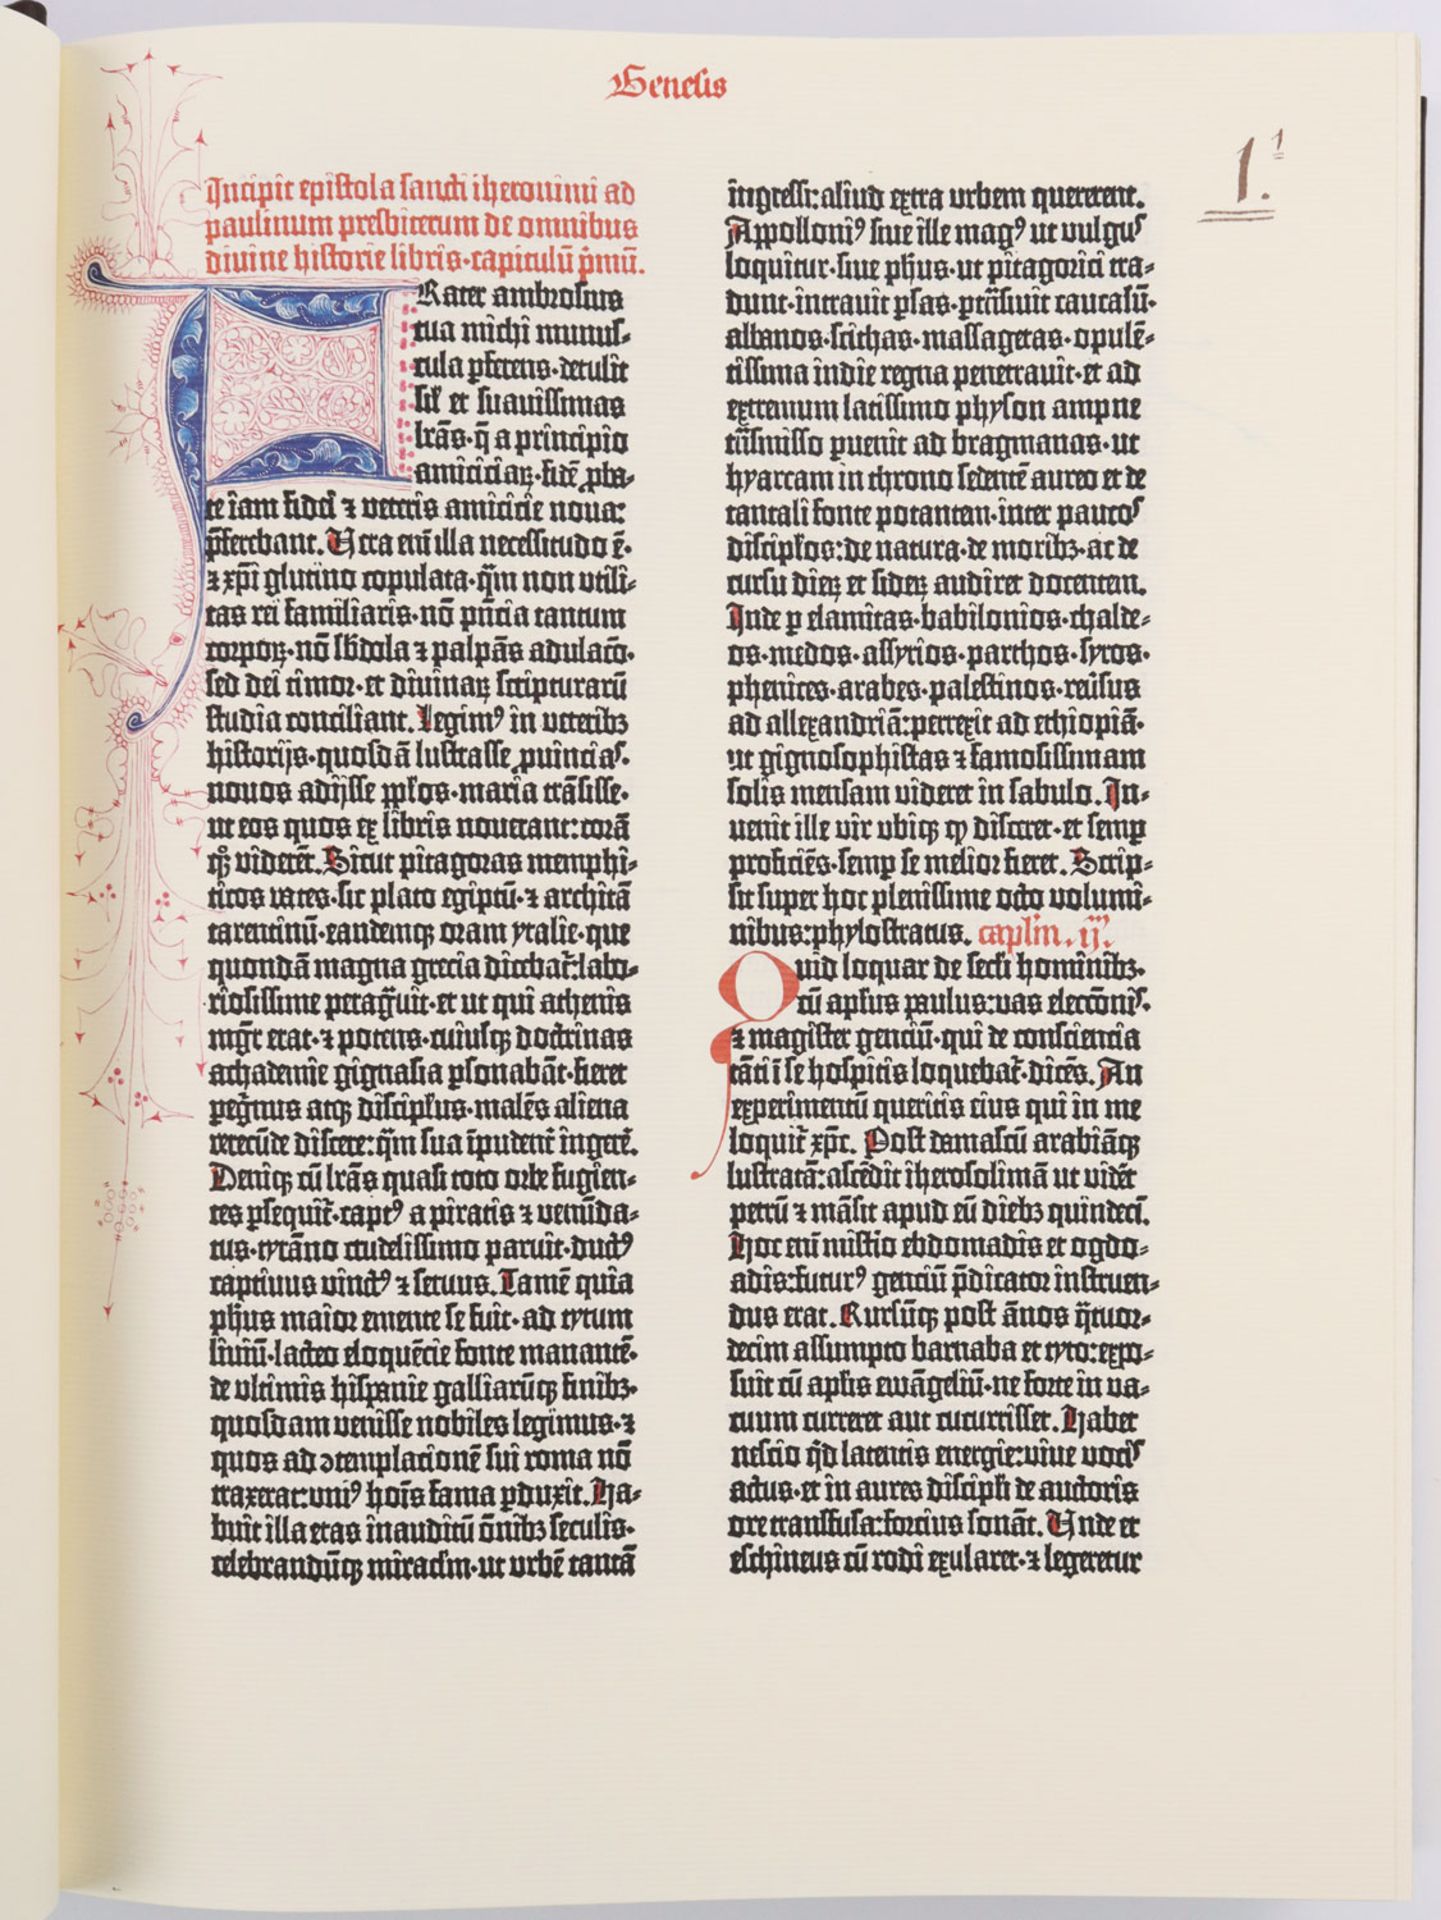 Genesis
1. 1
Incipit epistola sancti iheronimi ad
paulinum presbiterum de omnibus
divine historie libris·capitulū p̄mū.
FRater ambrosius
tua michi munus-
cula pferens·detulit
sil' et suauissimas
lrās·q̄ a principio
amiciciaꝝ·fidē ꝓba-
te iam fidei ⁊ veteris amicicie noua:
p̄ferebant. Vera enī illa necessitudo ē·
⁊ xp̄i glutino copulata·q̄m non utili-
tas rei familiaris·nō pn̄cia tantum
corpoꝝ·nō sb̄dola ⁊ palpās adulacō·
sed dei timor·et diuinaꝝ scripturarū
studia conciliant. Legimꝰ in veteribꝫ
historijs·quosdā lustrasse ꝓuincias·
nouos adijsse pp̄los·maria trāsisse·
ut eos quos ex libris nouerant: corā
qꝫ viderēt. Sicut pitagoras memphi-
ticos vates·sic plato egiptū·⁊ architā
tarentinū·eandemqꝫ oram ytalie·que
quondā magna grecia dicebat̄: labo-
riosissime peragͣuit·et ut qui athenis
mgr̄ erat·⁊ potens·cuiusqꝫ doctrinas
achademie gignasia ꝑsonabāt·fieret
peg̊rinus atqꝫ discipl̓us·malēs aliena
verecūde discere: q̄m sua īpudent̄ ingerē.
Deniqꝫ cū lrās quasi toto orbe fugien-
tes ꝑsequit̄·captꝰ a piratis ⁊ venūda-
tus·tyrāno crudelissimo paruit·ductꝰ
captiuus vinctꝰ ⁊ seruus. Tamē quia
ph̄us maior emente se fuit·ad tytum
liuiū·lacteo eloquēcie fonte manantē·
de ultimis hispanie galliarūqꝫ finibꝫ·
quosdam venisse nobiles legimus·⁊
quos ad ꝯtemplacionē sui roma nō
traxerat: uniꝰ hoīs fama ꝑduxit. Ha-
buit illa etas inauditū ōnibꝫ seculis·
celebrandūqꝫ miraclm·ut urbē tantā
ingressi: aliud extra urbem quererent.
Appolloniꝰ siue ille magꝰ ut vulgus
loquitur·siue ph̄us·ut pitagorici tra-
dunt·intrauit ꝑsas·ꝑtrāsiuit caucasū·
albanos·scithas·massagetas·opulē-
tissima indie regna penetrauit·et ad
extremum latissimo physon ampne
trāsmisso ꝑuenit ad bragmanas·ut
hyarcam in throno sedentē aureo et de
tantali fonte potantem·inter paucos
discipl̓os: de natura·de moribꝫ·ac de
cursu dieꝝ et sideꝝ audiret docentem.
Inde ꝑ elamitas·babilonios·chalde-
os·medos·assyrios·parthos·syros·
phenices·arabes·palestinos·reūsus
ad allexandriā: perrexit ad ethiopiā·
ut gignosophistas ⁊ famosissimam
solis mensam videret in sabulo. In-
uenit ille vir ubiqꝫ ꝙ disceret·et semꝑ
proficiēs·semꝑ se melior fieret. Scrip-
sit super hoc plenissime octo volumi-
nibus: phylostratus. caplm. ij.
Quid loquar de secl'i hominibꝫ·
cū apl̓us paulus: vas electōis·
⁊ magister genciū·qui de consciencia
tāti ī se hospitis loquebat̄·dicēs. An
experimentū queritis eius qui in me
loquit̄ xp̄c. Post damascū arabiāqꝫ
lustratā: ascēdit iherosolimā ut vidēt
petrū ⁊ māsit apud eū diebꝫ quindecī.
Hoc enī mistio ebdomadis et ogdo-
adis: futurꝰ genciū p̄dicator instruen-
dus erat. Rursūqꝫ post ānos q̄tuor-
decim assumpto barnaba et tyto: expo-
suit cū apl̓is ewāgeliū·ne forte in va-
cuum curreret aut cucurrisset. Habet
nescio q̄d latentis energie: viue vocis
actus·et in aures discipl̓i de auctoris
ore transfusa: forcius sonāt. Vnde et
eschineus cū rodi exularet·⁊ legeretur